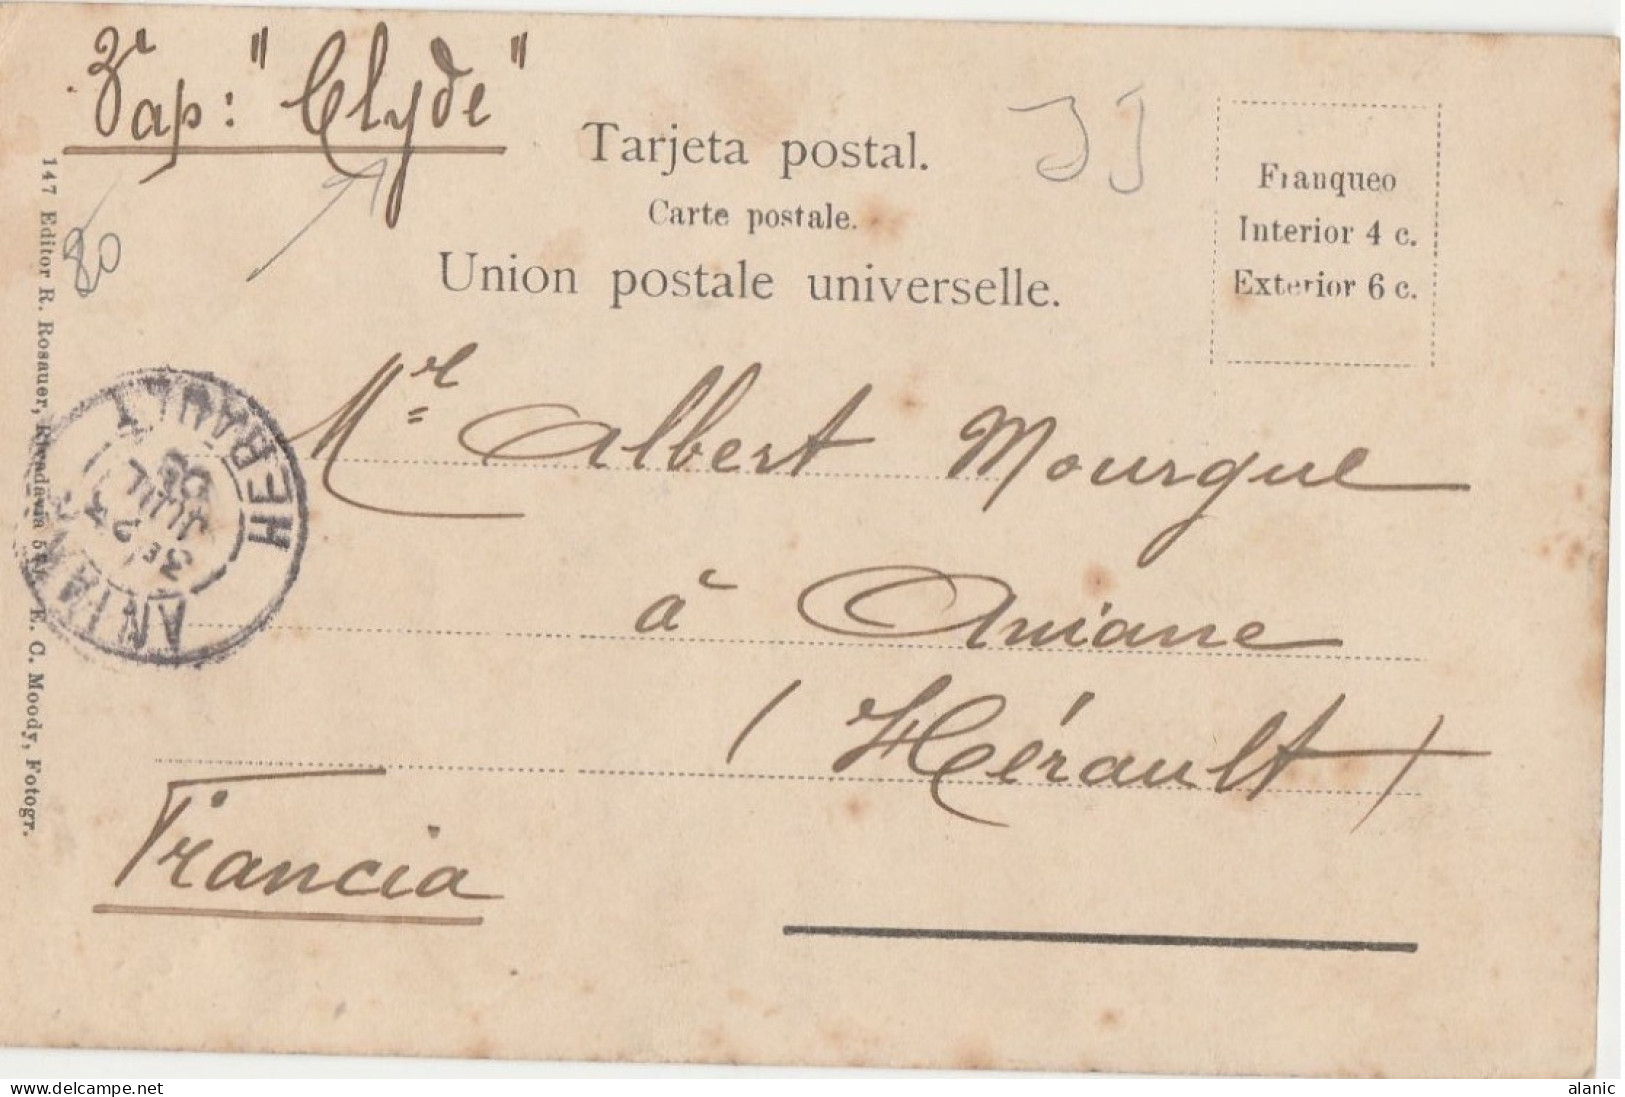 Vap: "Clyde"
Tarjeta postal.
Carte postale.
Union postale universelle.
Franqueo
Interior 4 c.
Exterior 6 c.
147 Editor R. Rosauer, Rivadavia E. C. Moody, Fotogr.
80
ANIANE
3E 23
JUIL
HERAULT
Mr Albert Mourgue
à Aniane
(Hérault)
Francia
www.delcampe.net
alanic